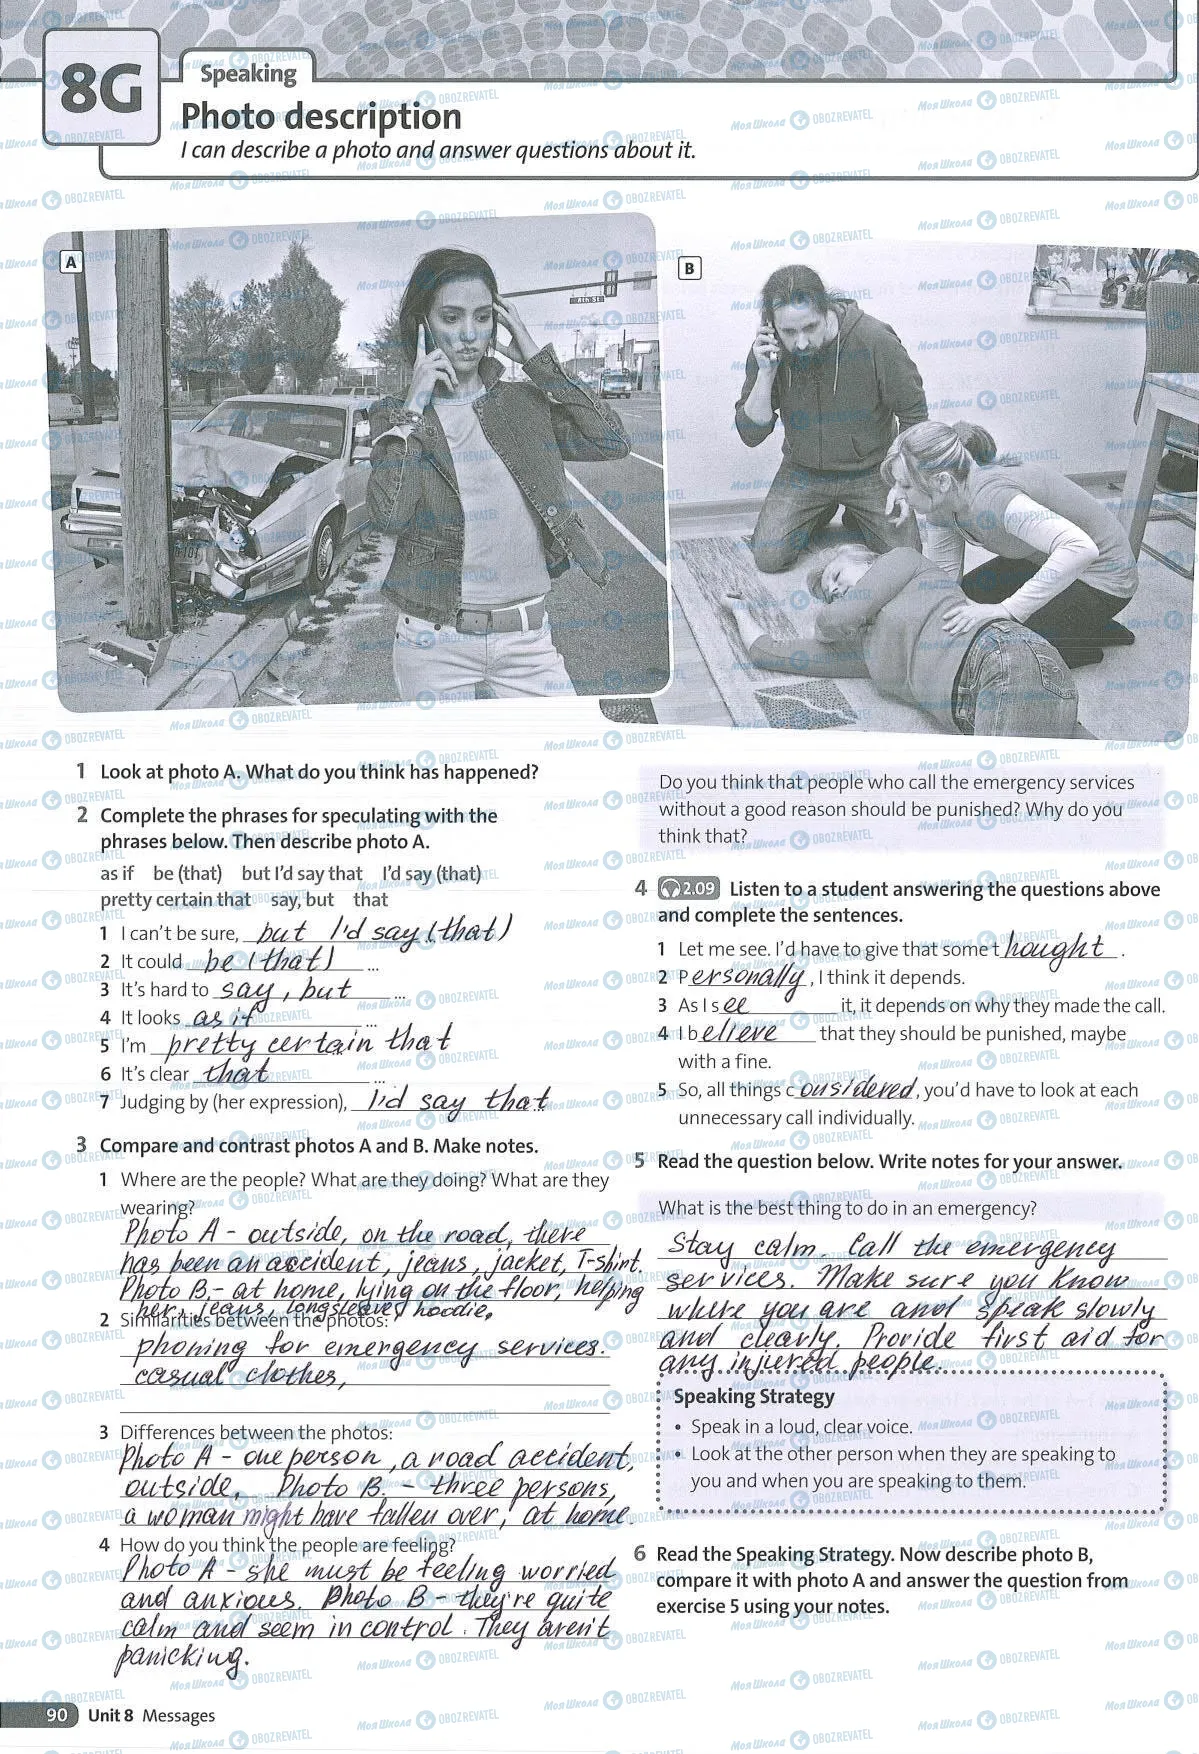 8G
Speaking
Photo description
I can describe a photo and answer questions about it.
A
8th St
B
1 Look at photo A. What do you think has happened?
2 Complete the phrases for speculating with the
phrases below. Then describe photo A.
as if be (that) but I'd say that I'd say (that)
pretty certain that say, but that
1 I can't be sure, but I'd say (that)
2 It could be (that) ...
3 It's hard to say, but ...
4 It looks as if ...
5 I'm pretty certain that
6 It's clear that ...
7 Judging by (her expression), I'd say that
3 Compare and contrast photos A and B. Make notes.
1 Where are the people? What are they doing? What are they
wearing?
Photo A - outside, on the road, there
has been an accident, jeans, jacket, T-shirt.
Photo B. - at home, lying on the floor, helping
her, jeans, longsleeve, hoodie.
2 Similarities between the photos:
phoning for emergency services.
casual clothes,
3 Differences between the photos:
Photo A - one person, a road accident,
outside. Photo B. - three persons,
a woman might have fallen over, at home.
4 How do you think the people are feeling?
Photo A - she must be feeling worried
and anxious. Photo B - they're quite
calm and seem in control. They aren't
panicking.
Do you think that people who call the emergency services
without a good reason should be punished? Why do you
think that?
4 2.09 Listen to a student answering the questions above
and complete the sentences.
1 Let me see. I'd have to give that some thought.
2 Personally, I think it depends.
3 As I see it, it depends on why they made the call.
4 I believe that they should be punished, maybe
with a fine.
5 So, all things considered, you'd have to look at each
unnecessary call individually.
5 Read the question below. Write notes for your answer.
What is the best thing to do in an emergency?
Stay calm. Call the emergency
services. Make sure you know
where you are and speak slowly
and clearly. Provide first aid for
any injured people.
Speaking Strategy
• Speak in a loud, clear voice.
• Look at the other person when they are speaking to
you and when you are speaking to them.
6 Read the Speaking Strategy. Now describe photo B,
compare it with photo A and answer the question from
exercise 5 using your notes.
90 Unit 8 Messages
Моя Школа OBOZREVATEL